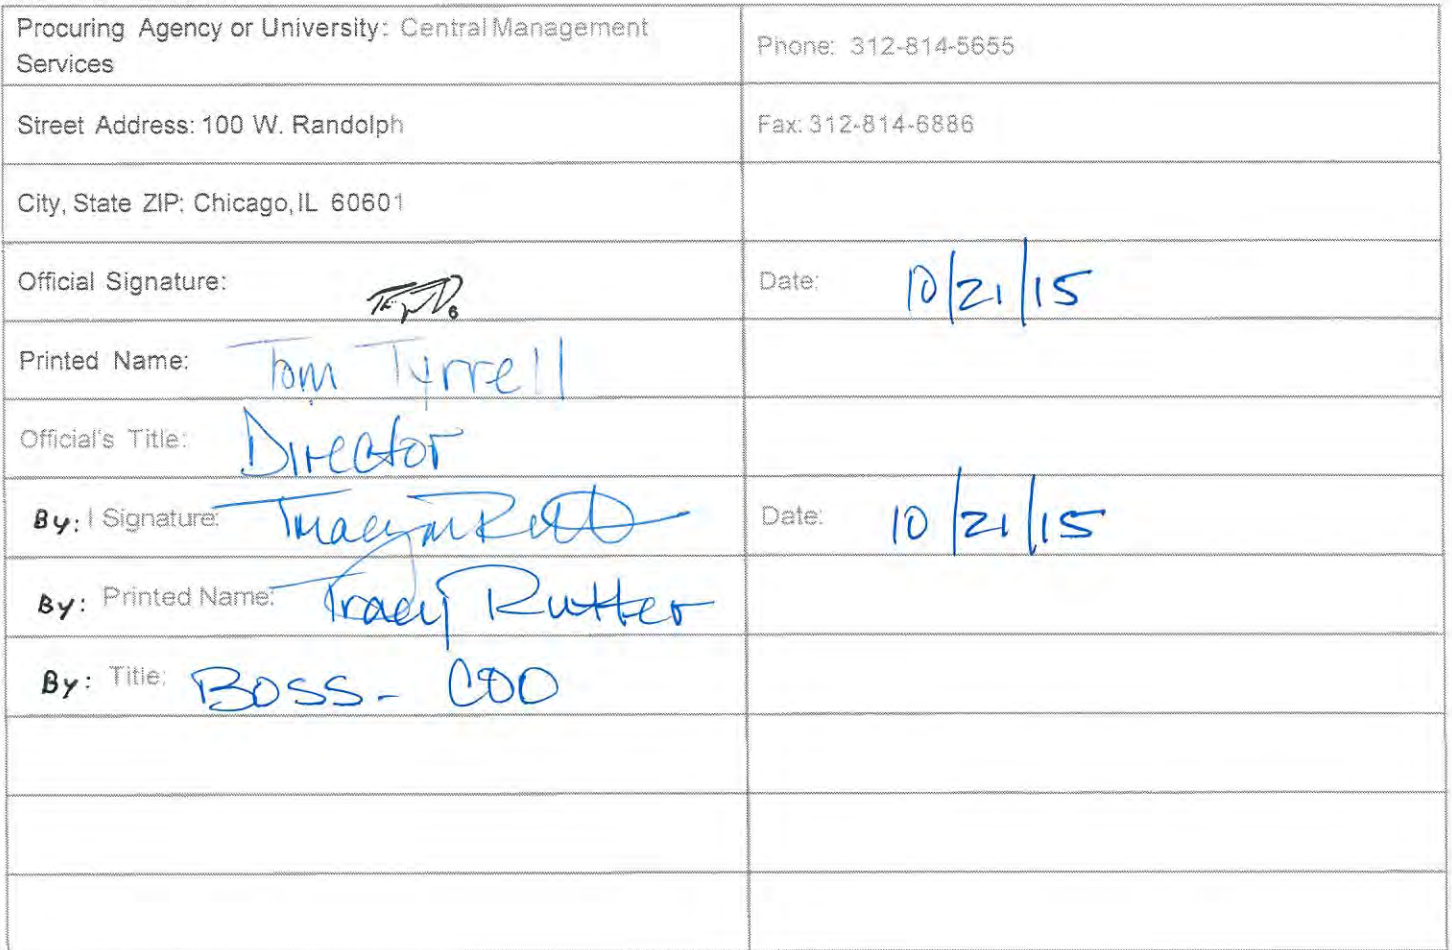 Procuring Agency or University: Central Management
Services
Phone: 312-814-5655
Street Address: 100 W. Randolph
Fax: 312-814-6886
City, State ZIP: Chicago, IL 60601
Official Signature:
Date: 10/21/15
Printed Name: Tom Tyrrell
Official's Title: Director
By: Signature:
Date: 10/21/15
By: Printed Name: Tracy Rutter
By: Title: BOSS - COO